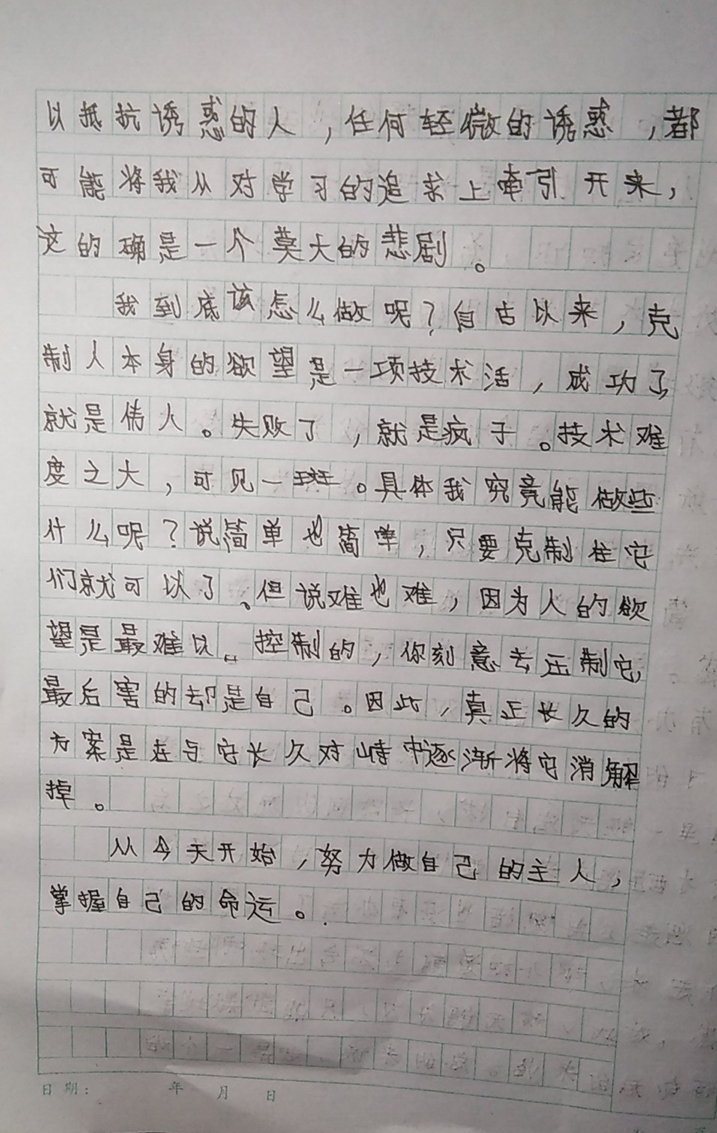 以抵抗诱惑的人，任何轻微的诱惑，都
可能将我从对学习的追求上牵引开来，
这的确是一个莫大的悲剧。
我到底该怎么做呢？自古以来，克
制人本身的欲望是一项技术活，成功了
就是伟人。失败了，就是疯子。技术难
度之大，可见一斑。具体我究竟能做些
什么呢？说简单也简单，只要克制住它
们就可以了。但说难也难，因为人的欲
望是最难以。控制的，你刻意去压制它，
最后害的却是自己。因此，真正长久的
方案是在与它长久对峙中逐渐将它消解
掉。
从今天开始，努力做自己的主人，
掌握自己的命运。
日期： 年 月 日